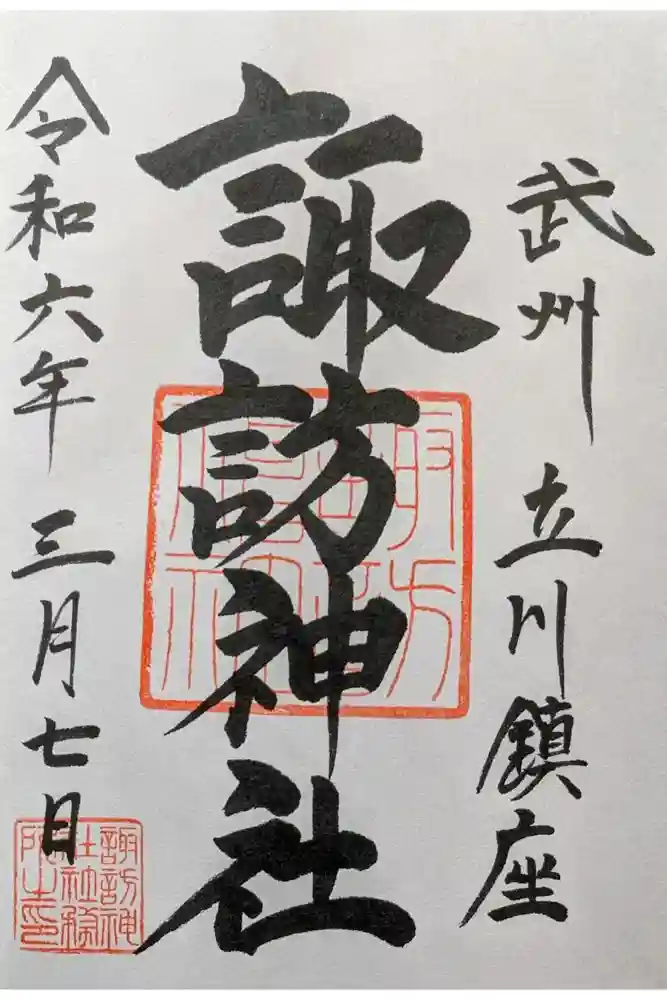 武州 立川鎮座
諏訪神社
令和六年 三月七日
諏訪神
社社務
所之印